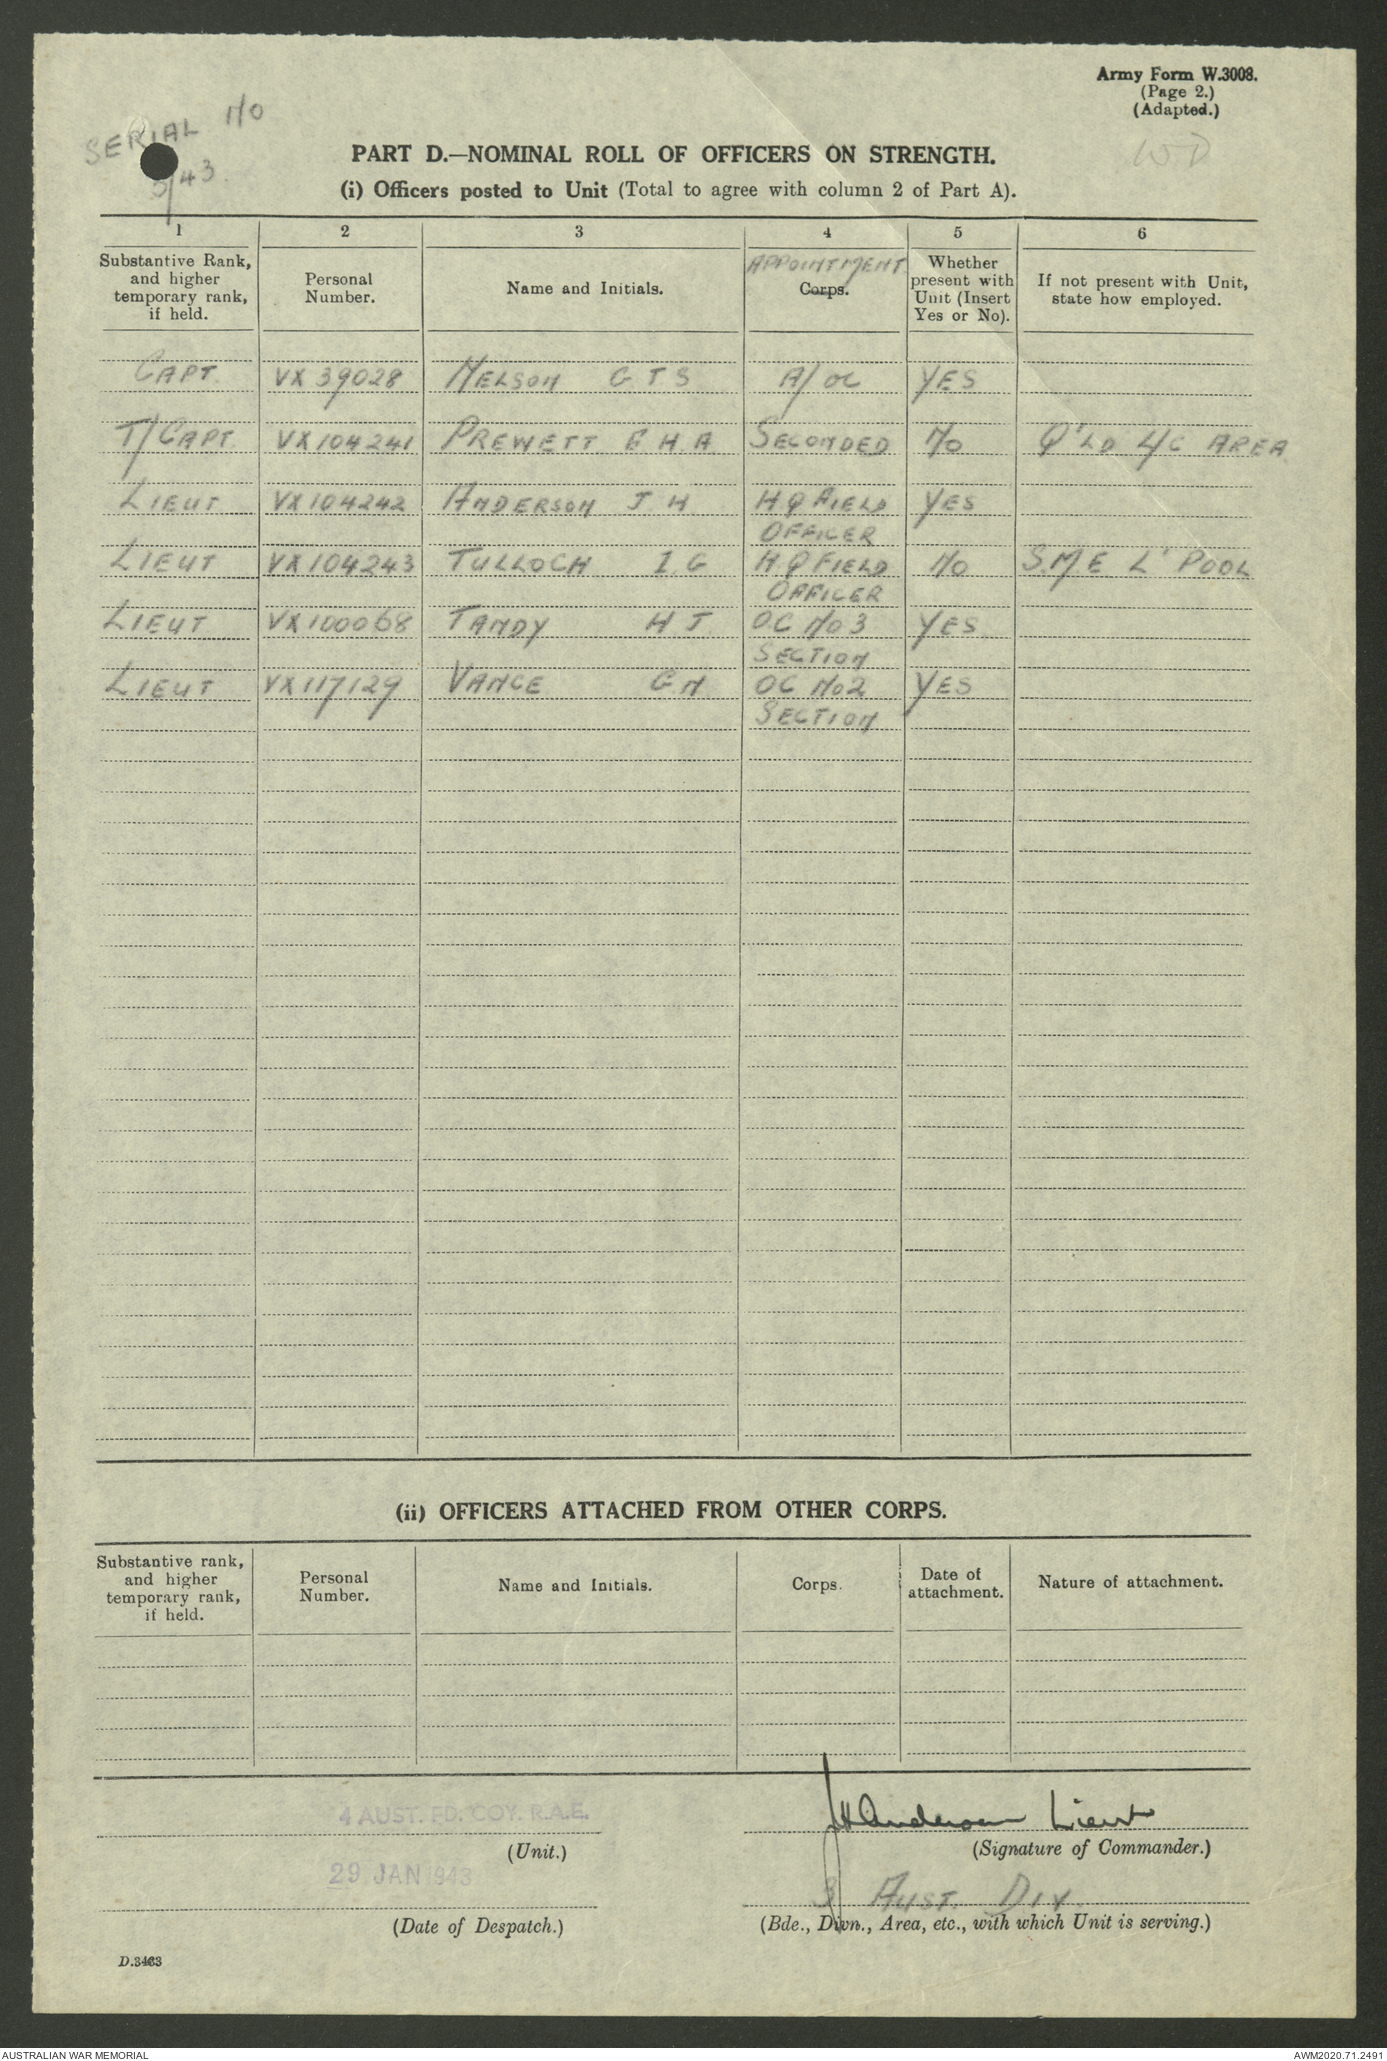 Army Form W.3008.
(Page 2.)
(Adapted.)
SERIAL NO
5/43.
WD
PART D.—NOMINAL ROLL OF OFFICERS ON STRENGTH.
(i) Officers posted to Unit (Total to agree with column 2 of Part A).
1 2 3 4 5 6
Substantive Rank, and higher temporary rank, if held. Personal Number. Name and Initials. APPOINTMENT Corps. Whether present with Unit (Insert Yes or No). If not present with Unit, state how employed.
CAPT. VX 39028 NELSON G T S A/OC YES
T/CAPT. VX104241 PREWETT E H A SECONDED NO Q'LD L/C AREA
LIEUT VX104242 ANDERSON J H HQ FIELD YES
OFFICER
LIEUT VX104243 TULLOCH I G HQ FIELD NO S.M.E L'POOL
OFFICER
LIEUT VX100068 TANDY H J OC NO 3 YES
SECTION
LIEUT VX117129 VANCE G N OC NO 2 YES
SECTION
(ii) OFFICERS ATTACHED FROM OTHER CORPS.
Substantive rank, and higher temporary rank, if held. Personal Number. Name and Initials. Corps. Date of attachment. Nature of attachment.
4 AUST. FD. COY. R.A.E. JHAnderson Lieut
(Unit.) (Signature of Commander.)
29 JAN 1943 3 AUST. DIV
(Date of Despatch.) (Bde., Divn., Area, etc., with which Unit is serving.)
D.3463
AUSTRALIAN WAR MEMORIAL AWM2020.71.2491